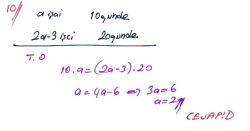 10/
a işçi 10günde
2a-3 işçi 20günde
T.O
10.a=(2a-3).20
a=4a-6 ⇒ 3a=6
a=2//
CEVAP:D